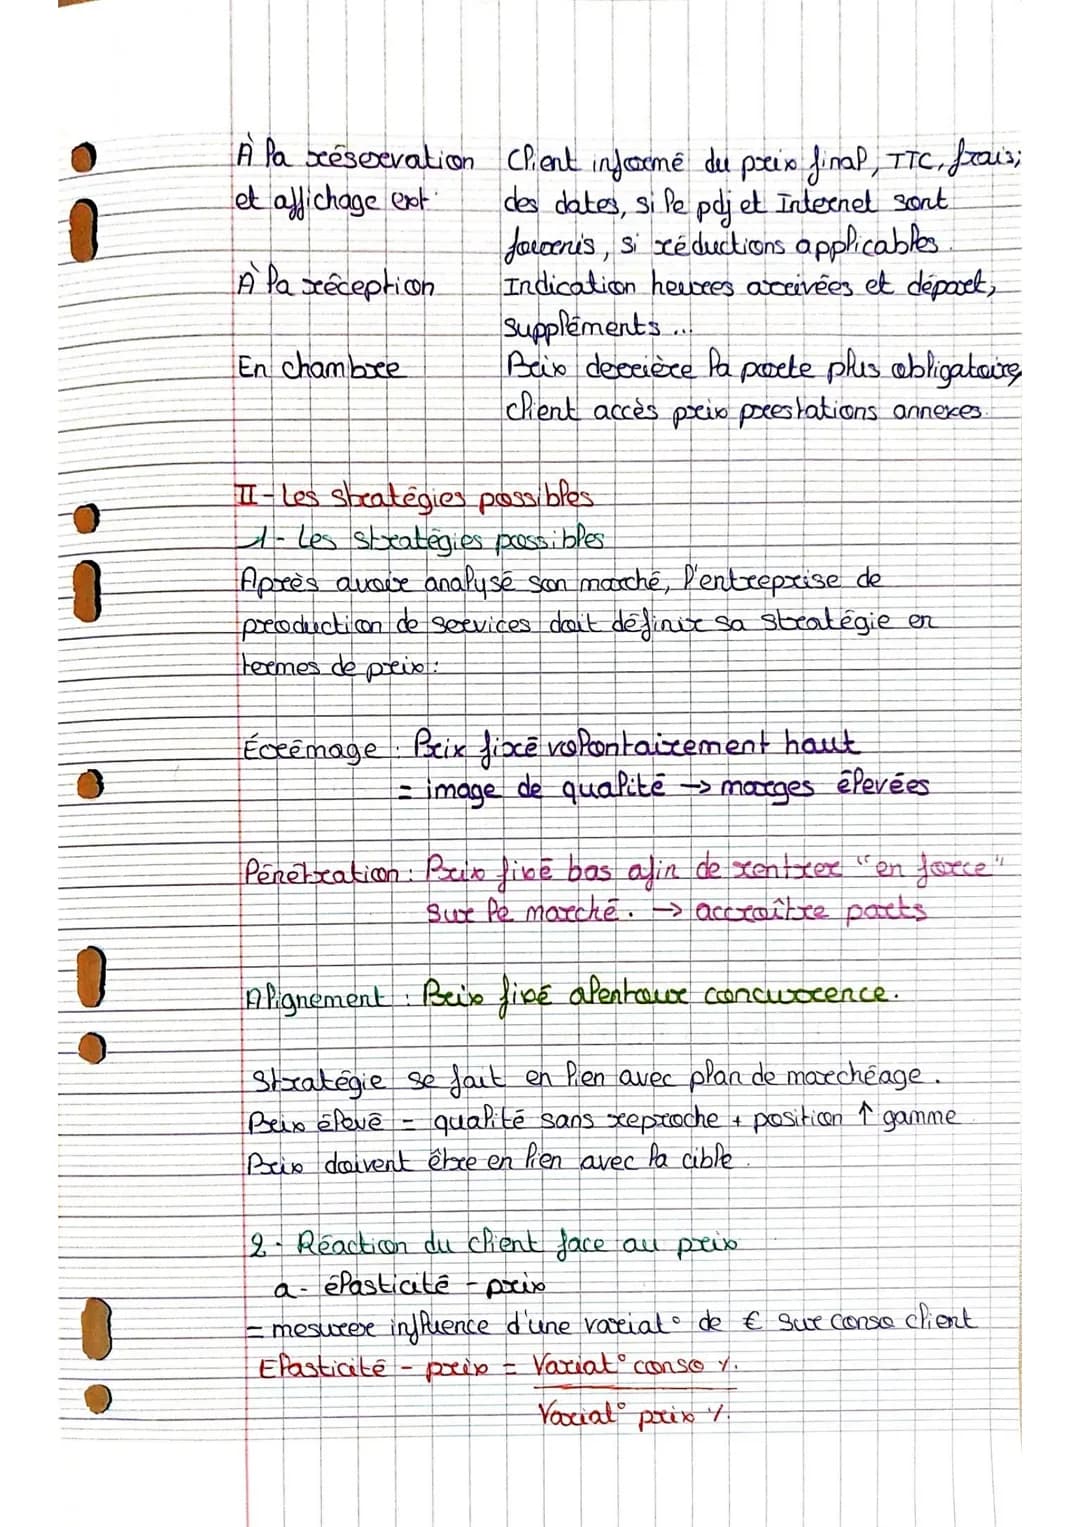 À la réservation Client informé du prix final, TTC, frais;
et affichage ext. des dates, si le pdj et Internet sont
fournis, si réductions applicables.
À la réception Indication heures arrivées et départ,
suppléments ...
En chambre Prix derrière la porte plus obligatoire,
client accès prix prestations annexes.
II - Les stratégies possibles
1 - Les stratégies possibles
Après avoir analysé son marché, l'entreprise de
production de services doit définir sa stratégie en
termes de prix :
Écrémage : Prix fixé volontairement haut
= image de qualité → marges élevées
Pénétration : Prix fixé bas afin de rentrer "en force"
sur le marché. → accroître parts
Alignement : Prix fixé alentour concurrence.
Stratégie se fait en lien avec plan de marchéage.
Prix élevé = qualité sans reproche + position ↑ gamme
Prix doivent être en lien avec la cible.
2 - Réaction du client face au prix
a - élasticité - prix
= mesurer influence d'une variat° de € sur conso client
Elasticité - prix = Variat° conso %.
Variat° prix %.